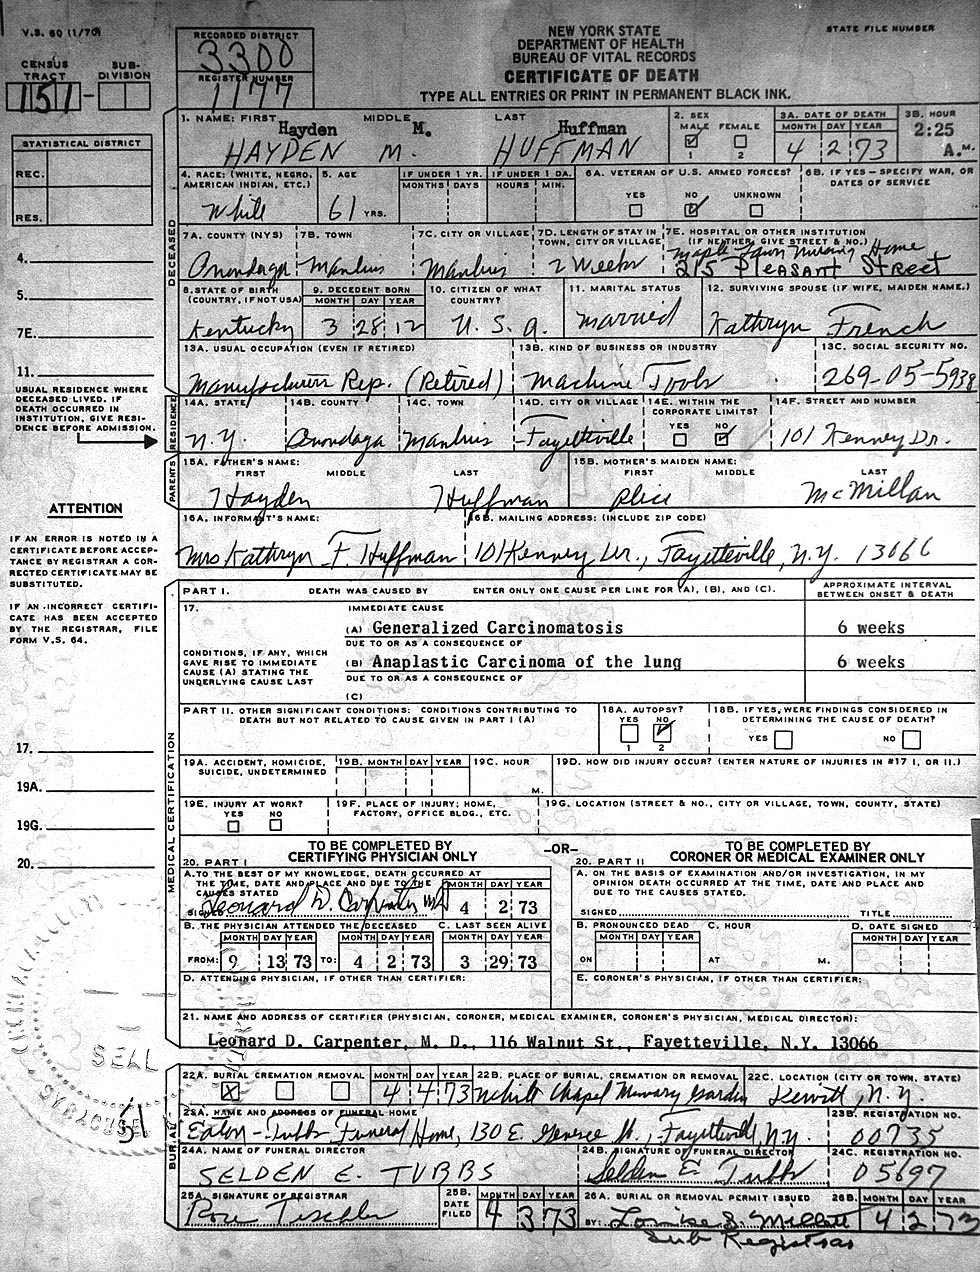 V.S. 60 (1/70)
NEW YORK STATE
DEPARTMENT OF HEALTH
BUREAU OF VITAL RECORDS
CERTIFICATE OF DEATH
TYPE ALL ENTRIES OR PRINT IN PERMANENT BLACK INK.
STATE FILE NUMBER
RECORDED DISTRICT
3300
REGISTER NUMBER
1177
CENSUS TRACT SUB-DIVISION
151 -
STATISTICAL DISTRICT
REC.
RES.
4.
5.
7E.
11.
USUAL RESIDENCE WHERE
DECEASED LIVED. IF
DEATH OCCURRED IN
INSTITUTION, GIVE RESI-
DENCE BEFORE ADMISSION.
ATTENTION
IF AN ERROR IS NOTED IN A
CERTIFICATE BEFORE ACCEP-
TANCE BY REGISTRAR A COR-
RECTED CERTIFICATE MAY BE
SUBSTITUTED.
IF AN INCORRECT CERTIFI-
CATE HAS BEEN ACCEPTED
BY THE REGISTRAR, FILE
FORM V.S. 64.
17.
19A.
19G.
20.
DECEASED
1. NAME: FIRST MIDDLE LAST
Hayden M. Huffman
HAYDEN M. HUFFMAN
2. SEX
MALE FEMALE
1 2
3A. DATE OF DEATH
MONTH DAY YEAR
4 2 73
3B. HOUR
2:25
A.M.
4. RACE: (WHITE, NEGRO, AMERICAN INDIAN, ETC.)
White
5. AGE
61 YRS.
IF UNDER 1 YR.
MONTHS DAYS
IF UNDER 1 DA.
HOURS MIN.
6A. VETERAN OF U.S. ARMED FORCES?
YES NO UNKNOWN
6B. IF YES - SPECIFY WAR, OR DATES OF SERVICE
7A. COUNTY (NYS)
Onondaga
7B. TOWN
Manlius
7C. CITY OR VILLAGE
Manlius
7D. LENGTH OF STAY IN TOWN, CITY OR VILLAGE
2 Weeks
7E. HOSPITAL OR OTHER INSTITUTION
(IF NEITHER, GIVE STREET & NO.)
Maple Lawn Nursing Home
215 Pleasant Street
8. STATE OF BIRTH (COUNTRY, IF NOT USA)
Kentucky
9. DECEDENT BORN
MONTH DAY YEAR
3 28 12
10. CITIZEN OF WHAT COUNTRY?
U.S.A.
11. MARITAL STATUS
married
12. SURVIVING SPOUSE (IF WIFE, MAIDEN NAME.)
Kathryn French
13A. USUAL OCCUPATION (EVEN IF RETIRED)
Manufacturers Rep. (Retired)
13B. KIND OF BUSINESS OR INDUSTRY
Machine Tools
13C. SOCIAL SECURITY NO.
269-05-5938
RESIDENCE
14A. STATE
N.Y.
14B. COUNTY
Onondaga
14C. TOWN
Manlius
14D. CITY OR VILLAGE
Fayetteville
14E. WITHIN THE CORPORATE LIMITS?
YES NO
14F. STREET AND NUMBER
101 Kenney Dr.
PARENTS
15A. FATHER'S NAME:
FIRST MIDDLE LAST
Hayden Huffman
15B. MOTHER'S MAIDEN NAME:
FIRST MIDDLE LAST
Alice McMillan
16A. INFORMANT'S NAME:
Mrs Kathryn F. Huffman
16B. MAILING ADDRESS: (INCLUDE ZIP CODE)
101 Kenney Dr., Fayetteville, N.Y. 13066
MEDICAL CERTIFICATION
PART I. DEATH WAS CAUSED BY ENTER ONLY ONE CAUSE PER LINE FOR (A), (B), AND (C).
APPROXIMATE INTERVAL BETWEEN ONSET & DEATH
17. IMMEDIATE CAUSE
(A) Generalized Carcinomatosis 6 weeks
DUE TO OR AS A CONSEQUENCE OF
CONDITIONS, IF ANY, WHICH GAVE RISE TO IMMEDIATE CAUSE (A) STATING THE UNDERLYING CAUSE LAST
(B) Anaplastic Carcinoma of the lung 6 weeks
DUE TO OR AS A CONSEQUENCE OF
(C)
PART II. OTHER SIGNIFICANT CONDITIONS: CONDITIONS CONTRIBUTING TO DEATH BUT NOT RELATED TO CAUSE GIVEN IN PART I (A)
18A. AUTOPSY?
YES NO
1 2
18B. IF YES, WERE FINDINGS CONSIDERED IN DETERMINING THE CAUSE OF DEATH?
YES NO
19A. ACCIDENT, HOMICIDE, SUICIDE, UNDETERMINED
19B. MONTH DAY YEAR
19C. HOUR
M.
19D. HOW DID INJURY OCCUR? (ENTER NATURE OF INJURIES IN #17 I, OR II.)
19E. INJURY AT WORK?
YES NO
19F. PLACE OF INJURY; HOME, FACTORY, OFFICE BLDG., ETC.
19G. LOCATION (STREET & NO., CITY OR VILLAGE, TOWN, COUNTY, STATE)
TO BE COMPLETED BY
CERTIFYING PHYSICIAN ONLY
-OR-
TO BE COMPLETED BY
CORONER OR MEDICAL EXAMINER ONLY
20. PART I
A. TO THE BEST OF MY KNOWLEDGE, DEATH OCCURRED AT THE TIME, DATE AND PLACE AND DUE TO THE CAUSES STATED
SIGNED Leonard D. Carpenter MD
MONTH DAY YEAR
4 2 73
B. THE PHYSICIAN ATTENDED THE DECEASED
MONTH DAY YEAR MONTH DAY YEAR
FROM: 9 13 73 TO: 4 2 73
C. LAST SEEN ALIVE
MONTH DAY YEAR
3 29 73
D. ATTENDING PHYSICIAN, IF OTHER THAN CERTIFIER:
20. PART II
A. ON THE BASIS OF EXAMINATION AND/OR INVESTIGATION, IN MY OPINION DEATH OCCURRED AT THE TIME, DATE AND PLACE AND DUE TO THE CAUSES STATED.
SIGNED TITLE
B. PRONOUNCED DEAD
MONTH DAY YEAR
ON
C. HOUR
AT M.
D. DATE SIGNED
MONTH DAY YEAR
E. CORONER'S PHYSICIAN, IF OTHER THAN CERTIFIER:
21. NAME AND ADDRESS OF CERTIFIER (PHYSICIAN, CORONER, MEDICAL EXAMINER, CORONER'S PHYSICIAN, MEDICAL DIRECTOR):
Leonard D. Carpenter, M. D., 116 Walnut St., Fayetteville, N.Y. 13066
BURIAL
22A. BURIAL CREMATION REMOVAL
X
MONTH DAY YEAR
4 4 73
22B. PLACE OF BURIAL, CREMATION OR REMOVAL
White Chapel Memory Garden
22C. LOCATION (CITY OR TOWN, STATE)
Dewitt, N.Y.
23A. NAME AND ADDRESS OF FUNERAL HOME
Eaton-Tubbs Funeral Home, 130 E. Genesee St., Fayetteville, N.Y.
23B. REGISTRATION NO.
00735
24A. NAME OF FUNERAL DIRECTOR
SELDEN E. TUBBS
24B. SIGNATURE OF FUNERAL DIRECTOR
Selden E Tubbs
24C. REGISTRATION NO.
05697
25A. SIGNATURE OF REGISTRAR
Rose Tischler
25B. DATE FILED
MONTH DAY YEAR
4 3 73
26A. BURIAL OR REMOVAL PERMIT ISSUED
BY: Louise S. Millett
Sub Registrar
26B. MONTH DAY YEAR
4 2 73
SEAL
SYRACUSE
51